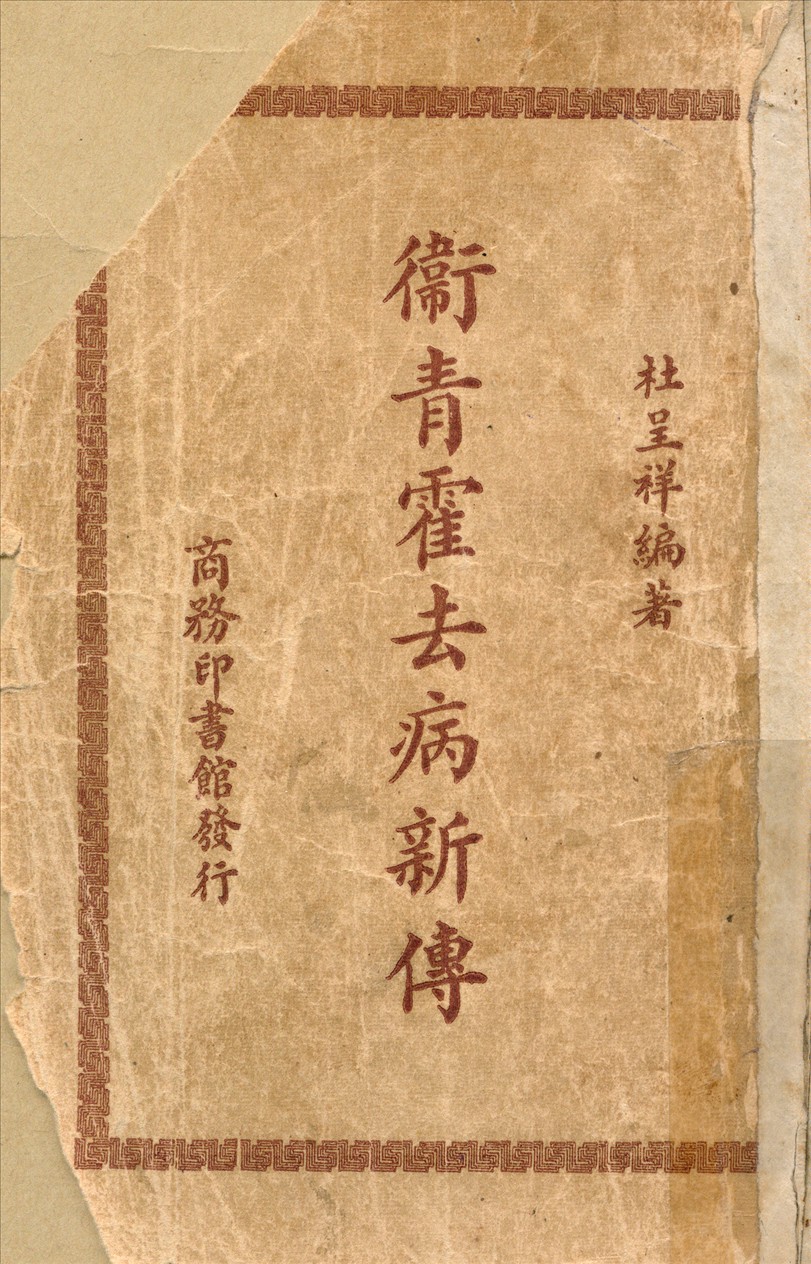 杜呈祥編著
衞青霍去病新傳
商務印書館發行